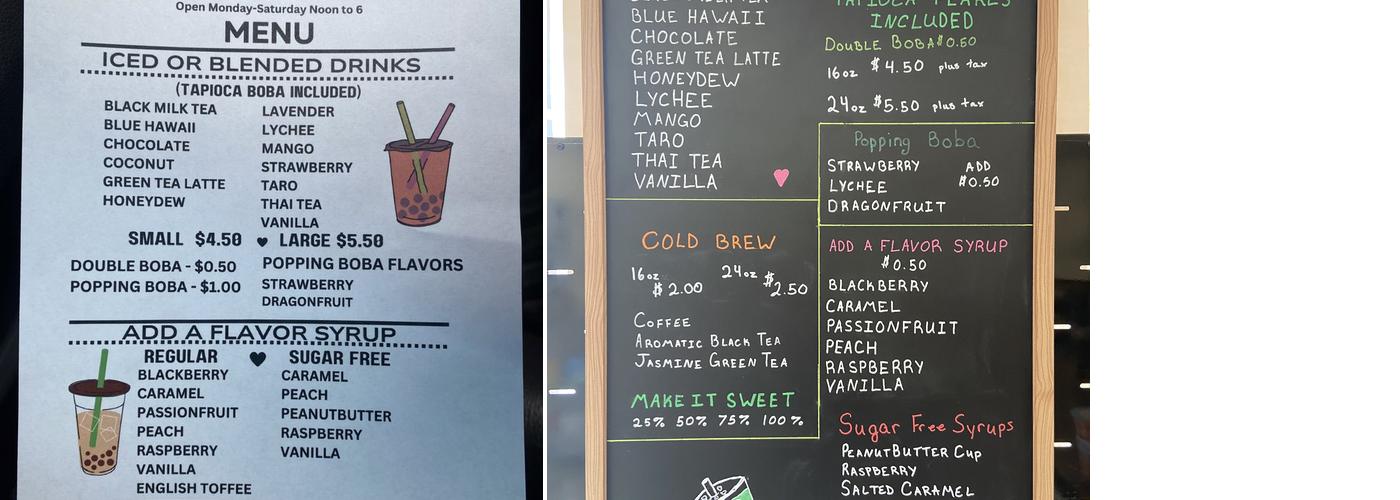 Open Monday-Saturday Noon to 6
MENU
ICED OR BLENDED DRINKS
(TAPIOCA BOBA INCLUDED)
BLACK MILK TEA
BLUE HAWAII
CHOCOLATE
COCONUT
GREEN TEA LATTE
HONEYDEW
LAVENDER
LYCHEE
MANGO
STRAWBERRY
TARO
THAI TEA
VANILLA
SMALL $4.50 LARGE $5.50
DOUBLE BOBA - $0.50
POPPING BOBA - $1.00
POPPING BOBA FLAVORS
STRAWBERRY
DRAGONFRUIT
ADD A FLAVOR SYRUP
REGULAR
BLACKBERRY
CARAMEL
PASSIONFRUIT
PEACH
RASPBERRY
VANILLA
ENGLISH TOFFEE
SUGAR FREE
CARAMEL
PEACH
PEANUTBUTTER
RASPBERRY
VANILLA
BLUE HAWAII
CHOCOLATE
GREEN TEA LATTE
HONEYDEW
LYCHEE
MANGO
TARO
THAI TEA
VANILLA
COLD BREW
16oz 24oz
$2.00 $2.50
COFFEE
AROMATIC BLACK TEA
JASMINE GREEN TEA
MAKE IT SWEET
25% 50% 75% 100%
TAPIOCA PEARLS
INCLUDED
DOUBLE BOBA $0.50
16oz $4.50 plus tax
24oz $5.50 plus tax
Popping Boba
STRAWBERRY
LYCHEE
DRAGONFRUIT
ADD
$0.50
ADD A FLAVOR SYRUP
$0.50
BLACKBERRY
CARAMEL
PASSIONFRUIT
PEACH
RASPBERRY
VANILLA
Sugar Free Syrups
PEANUTBUTTER CUP
RASPBERRY
SALTED CARAMEL